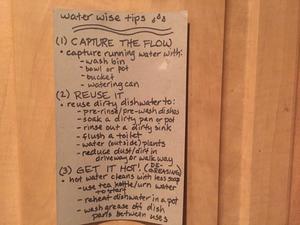 water wise tips
(1) CAPTURE THE FLOW
• capture running water with:
- wash bin
- bowl or pot
- bucket
- watering can
(2) REUSE IT
• reuse dirty dishwater to:
- pre-rinse/pre-wash dishes
- soak a dirty pan or pot
- rinse out a dirty sink
- flush a toilet
- water (outside) plants
- reduce dust/dirt in
driveway or walkway
(3) GET IT HOT! (DE-
GREASING)
• hot water cleans with less soap
- use tea kettle/urn water
to start
- reheat dishwater in a pot
- wash grease off dish
pots between uses